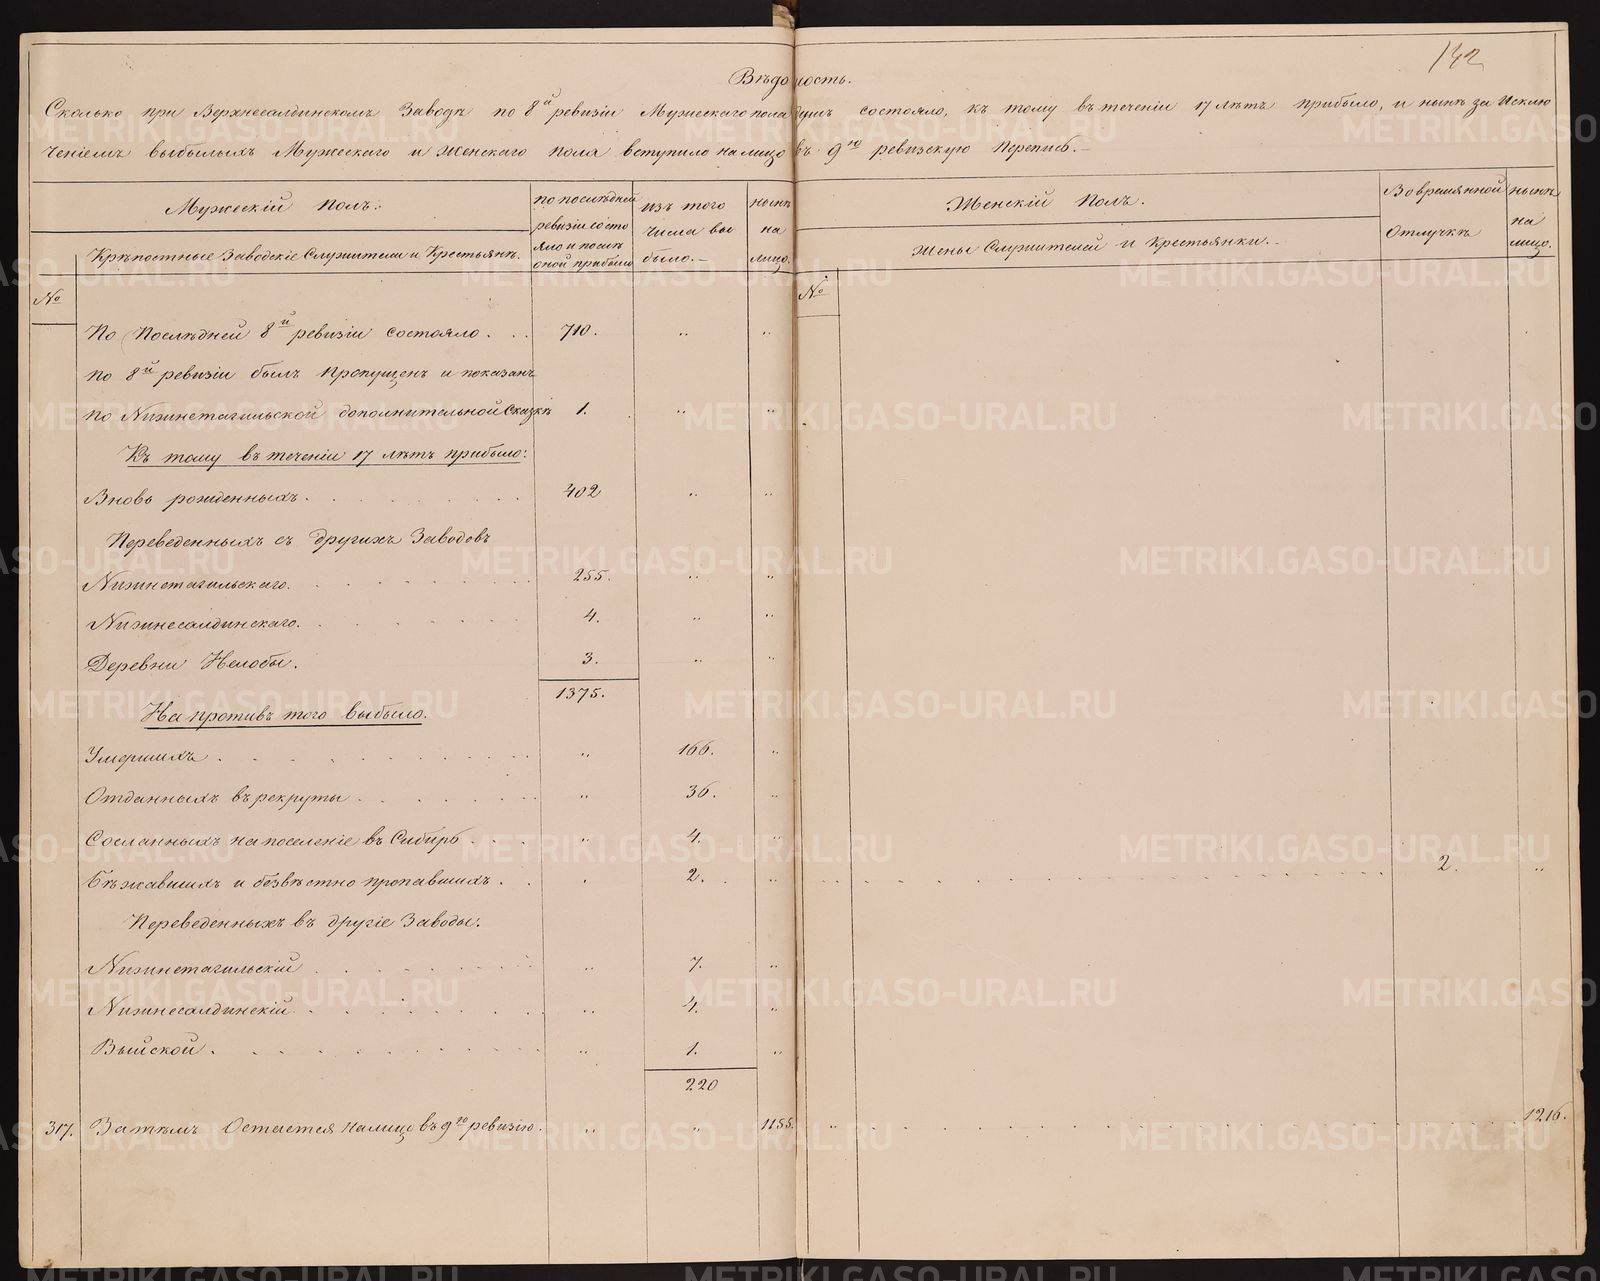 142
Вѣдомость.
Сколько при Верхнесалдинскомъ Заводѣ по 8й ревизіи Мужескаго пола душъ состояло, къ тому въ теченіи 17 лѣтъ прибыло, и нынѣ за Исклю
ченіемъ выбылыхъ Мужескаго и Женскаго пола вступило на лицо въ 9ю ревизскую Перепись.
Мужескій Полъ:
Крѣпостные Заводскіе Служители и Крестьянѣ.
по послѣдней
ревизіи состо
яло и послѣ
оной прибыло
изъ того
числа вы
было.
нынѣ
на
лицо.
Женскій Полъ.
Жены Служителей и Крестьянки.
Во времянной
Отлучкѣ
нынѣ
на
лицо.
№
№
По Послѣдней 8й ревизіи состояло . . . 710. „ „
по 8й ревизіи былъ пропущенъ и показанъ
по Нижнетагильской дополнительной Сказкѣ 1. „ „
Къ тому въ теченіи 17 лѣтъ прибыло:
Вновь рожденныхъ . . . 402 „ „
Переведенныхъ съ другихъ Заводовъ
Нижнетагильскаго. . . . 255. „ „
Нижнесалдинскаго. . . . 4. „ „
Деревни Нелобы. 3. „ „
1375.
На противъ того выбыло.
Умершихъ . . . „ 166. „
Отданныхъ въ рекруты . . . „ 36. „
Сосланныхъ на поселеніе въ Сибирь . . . „ 4. „
Бѣжавшихъ и безвѣстно пропавшихъ . . . 2. „ . . . 2. „
Переведенныхъ въ другіе Заводы:
Нижнетагильскій . . . „ 7. „
Нижнесалдинскій . . . „ 4. „
Выйской . . . „ 1. „
220
317. Затѣмъ Остается на лицо въ 9ю ревизію. „ „ 1155. „ . . . 1216.
METRIKI.GASO-URAL.RU